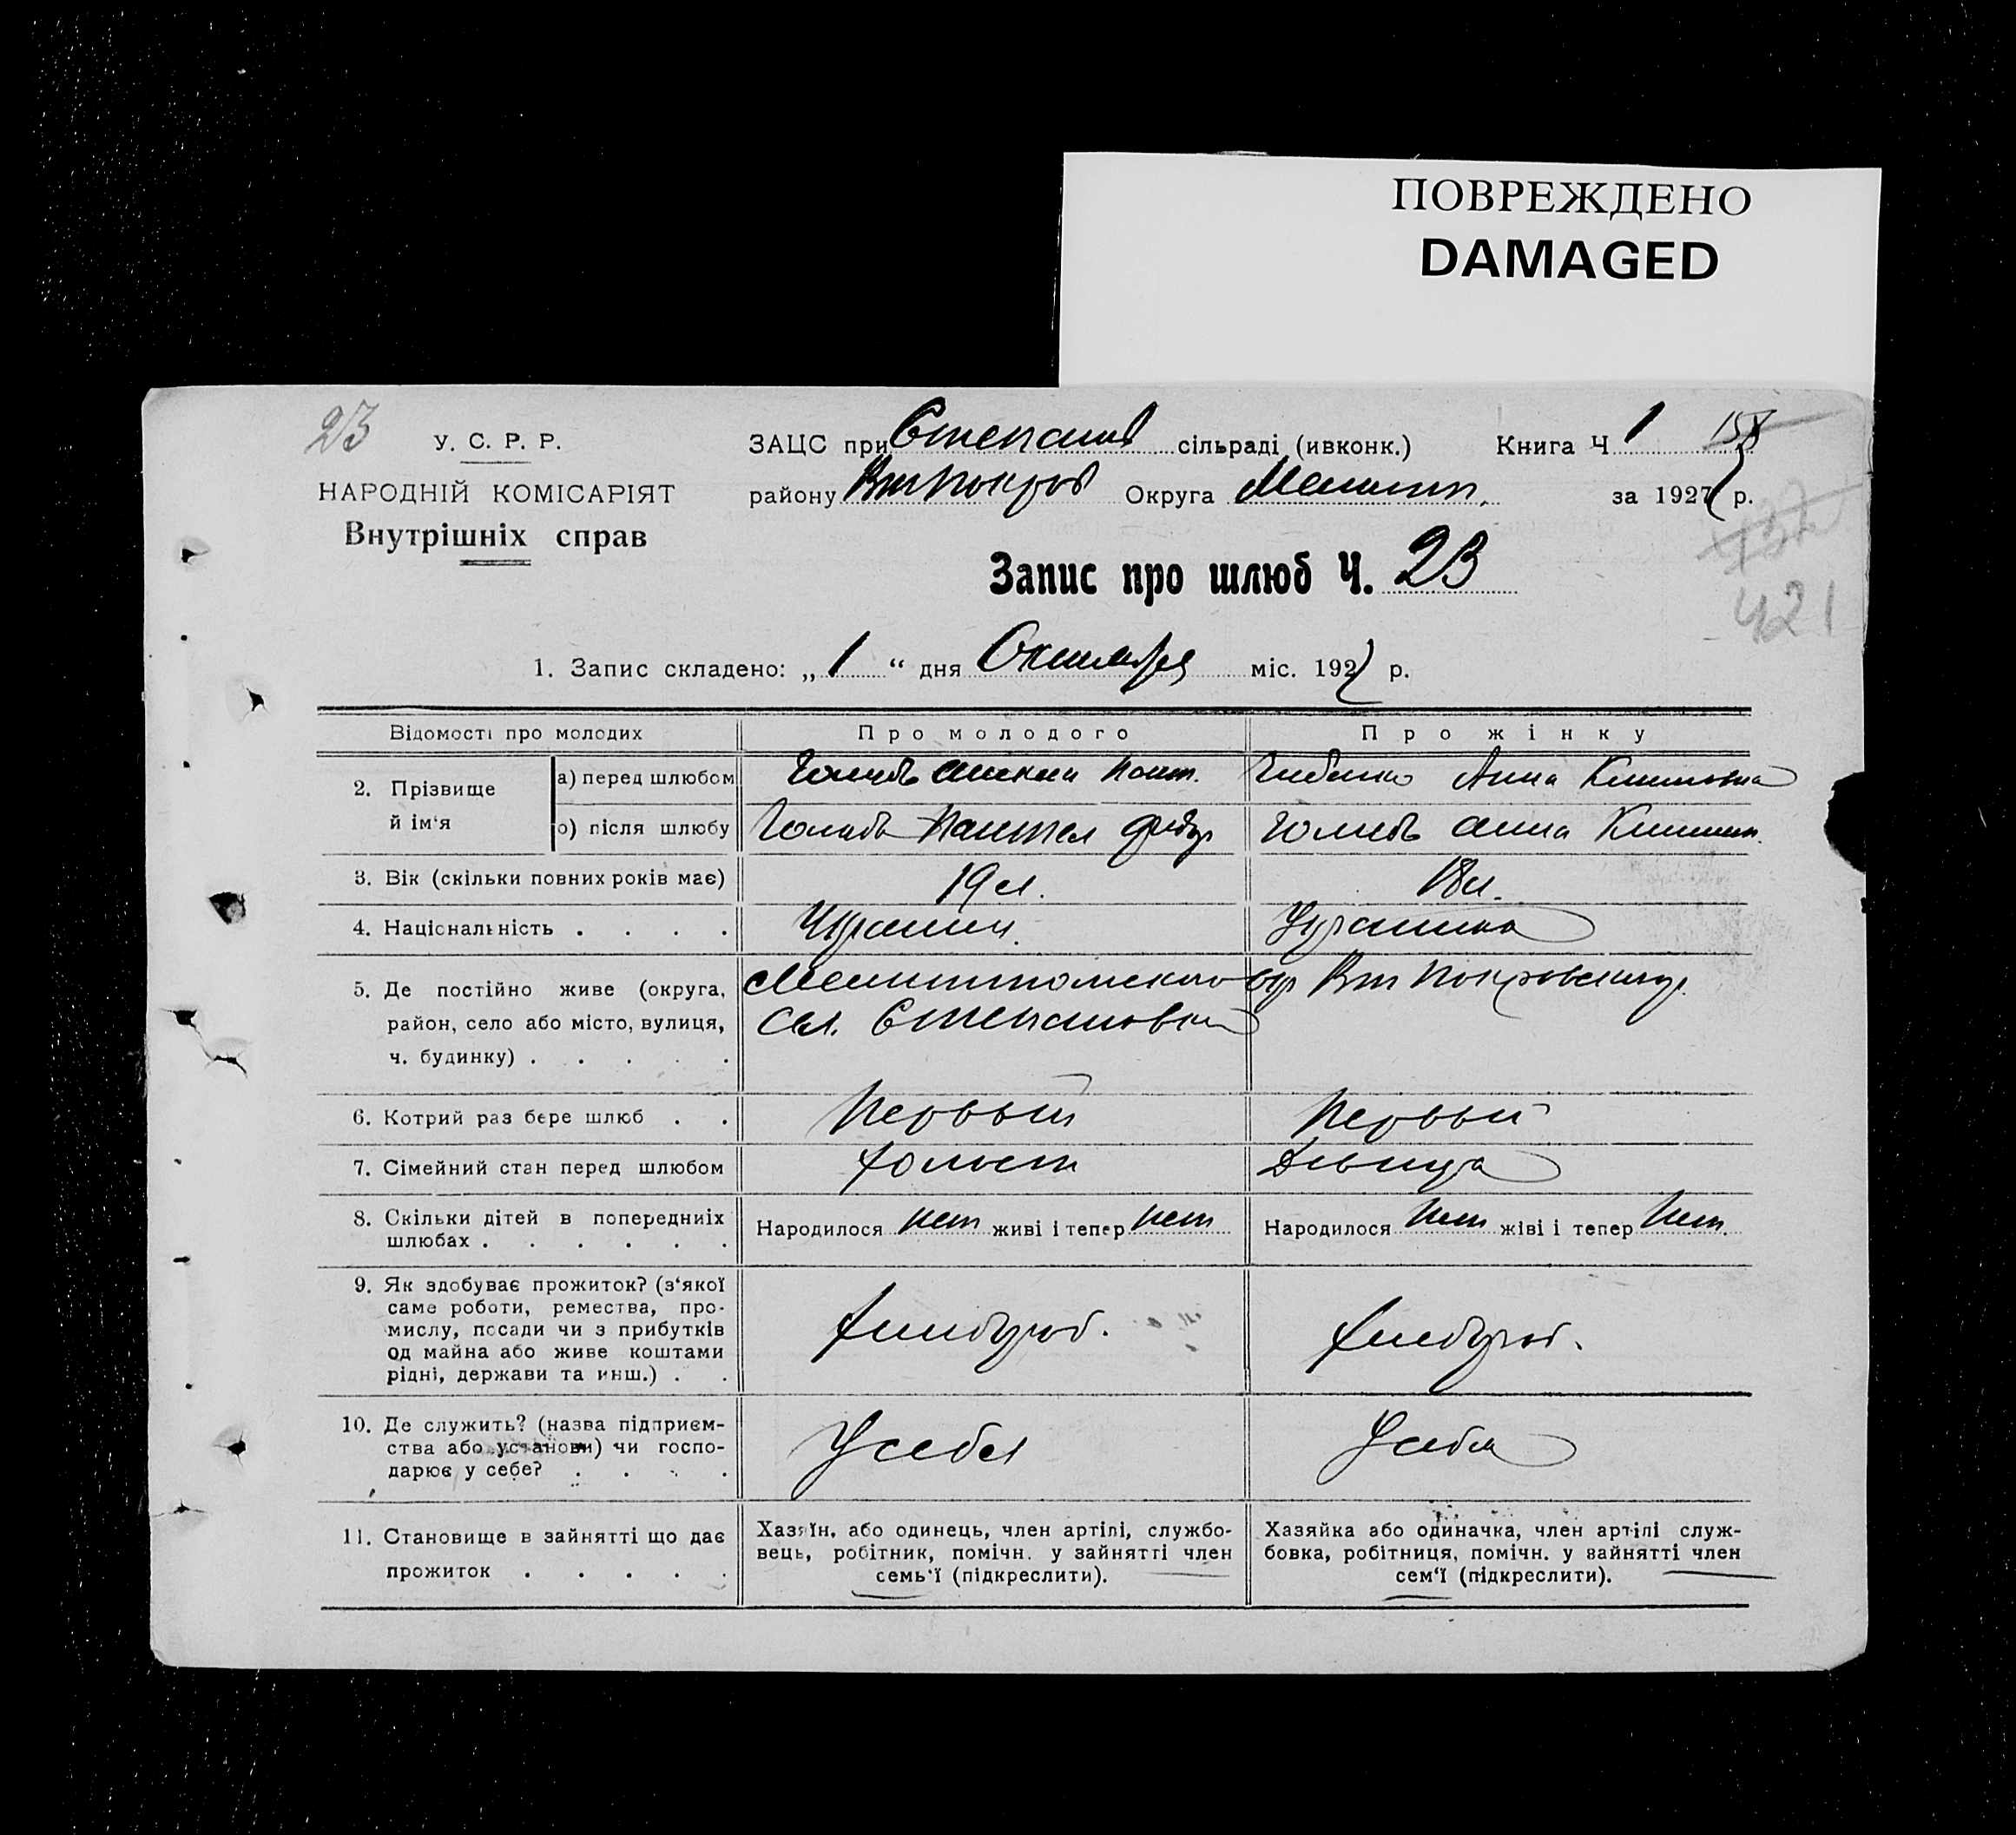 ПОВРЕЖДЕНО
DAMAGED
23
У. С. Р. Р.
НАРОДНІЙ КОМІСАРІЯТ
Внутрішніх справ
ЗАЦС при Степанов сільраді (ивконк.) Книга Ч 1
району Вт Покров Округа за 1927 р.
421
Запис про шлюб Ч. 23
1. Запис складено: „ 1 “ дня Октября міс. 1927 р.
Відомості про молодих
Про молодого
Про жінку
2. Прізвище й ім‘я
а) перед шлюбом
Анна
о) після шлюбу
Голубь Пантел Федор
Голубь Анна
3. Вік (скільки повних років має)
19 л.
18 л.
4. Національність . . . .
Украин.
Украинка
5. Де постійно живе (округа,
район, село або місто, вулиця,
ч. будинку) . . . . .
Мелитопольского окр Вт Покровского р.
Сел. Степановки
6. Котрий раз бере шлюб . .
Первый
Первый
7. Сімейний стан перед шлюбом
Холост
Девица
8. Скільки дітей в попередниіх
шлюбах . . . . . .
Народилося нет живі і тепер нет
Народилося нет жіві і тепер нет
9. Як здобуває прожиток? (з‘якої
саме роботи, ремества, про-
мислу, посади чи з прибутків
од майна або живе коштами
рідні, держави та инш.) . .
Хлебороб.
Хлебороб.
10. Де служить? (назва підприєм-
ства або установи) чи госпо-
дарює у себе? . . . .
У себя
У себя
11. Становище в зайнятті що дає
прожиток . . . . .
Хазяїн, або одинець, член артілі, службо-
вець, робітник, помічн. у зайнятті член
семь‘ї (підкреслити).
Хазяйка або одиначка, член артілі служ-
бовка, робітниця, помічн. у зайнятті член
сем‘ї (підкреслити).